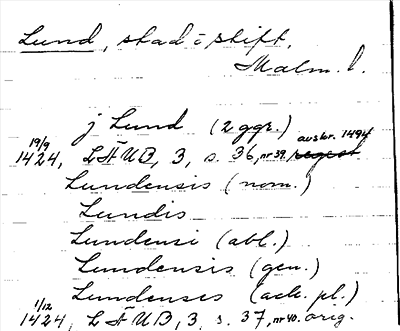 Lund, stad i stift,
Malm. l.
j Lund (2 ggr.) avskr. 1494
19/9 1424, LÄUB, 3, s. 36, nr 39. regest
Lundensis (nom.)
Lundis
Lundensi (abl.)
Lundensis (gen.)
Lundenses (ack. pl.)
1/12 1424, LÄUB, 3, s. 37, nr 40. orig.